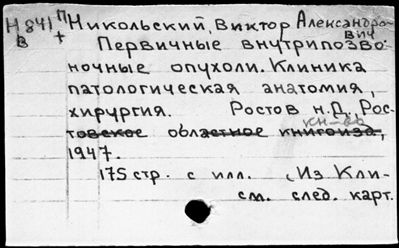 Н841 П Никольский, Виктор Александро-
В + вич
Первичные внутрипозво-
ночные опухоли. Клиника
патологическая анатомия,
хирургия. Ростов н.Д., Рос-
кн-во
товское областное книгоизд,
1947.
175 стр. с илл. (Из Кли-
см. след. карт.